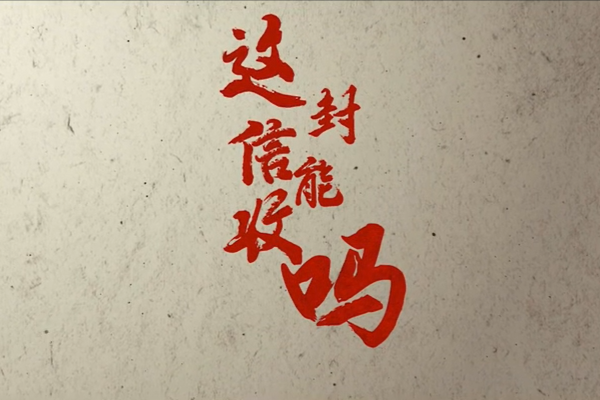 这封信能收吗